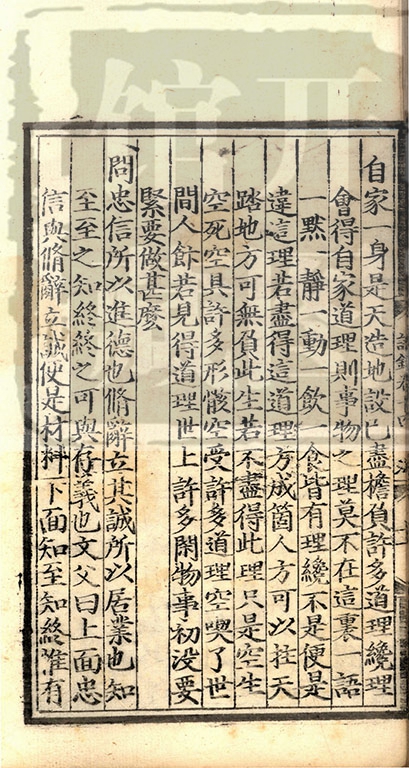 自家一身是天造地設已盡擔負許多道理纔理
會得自家道理則事物之理莫不在這裏一語
一黙一靜一動一飲一食皆有理纔不是便是
違這理若盡得這道理方成箇人方可以拄天
踏地方可無負此生若不盡得此理只是空生
空死空具許多形骸空受許多道理空喫了世
間人飰若見得道理世上許多閑物事初没要
緊要做甚麽
問忠信所以進德也脩辭立其誠所以居業也知
至至之知終終之可與存義也文父曰上面忠
信與脩辭立誠便是材料下面知至知終惟有